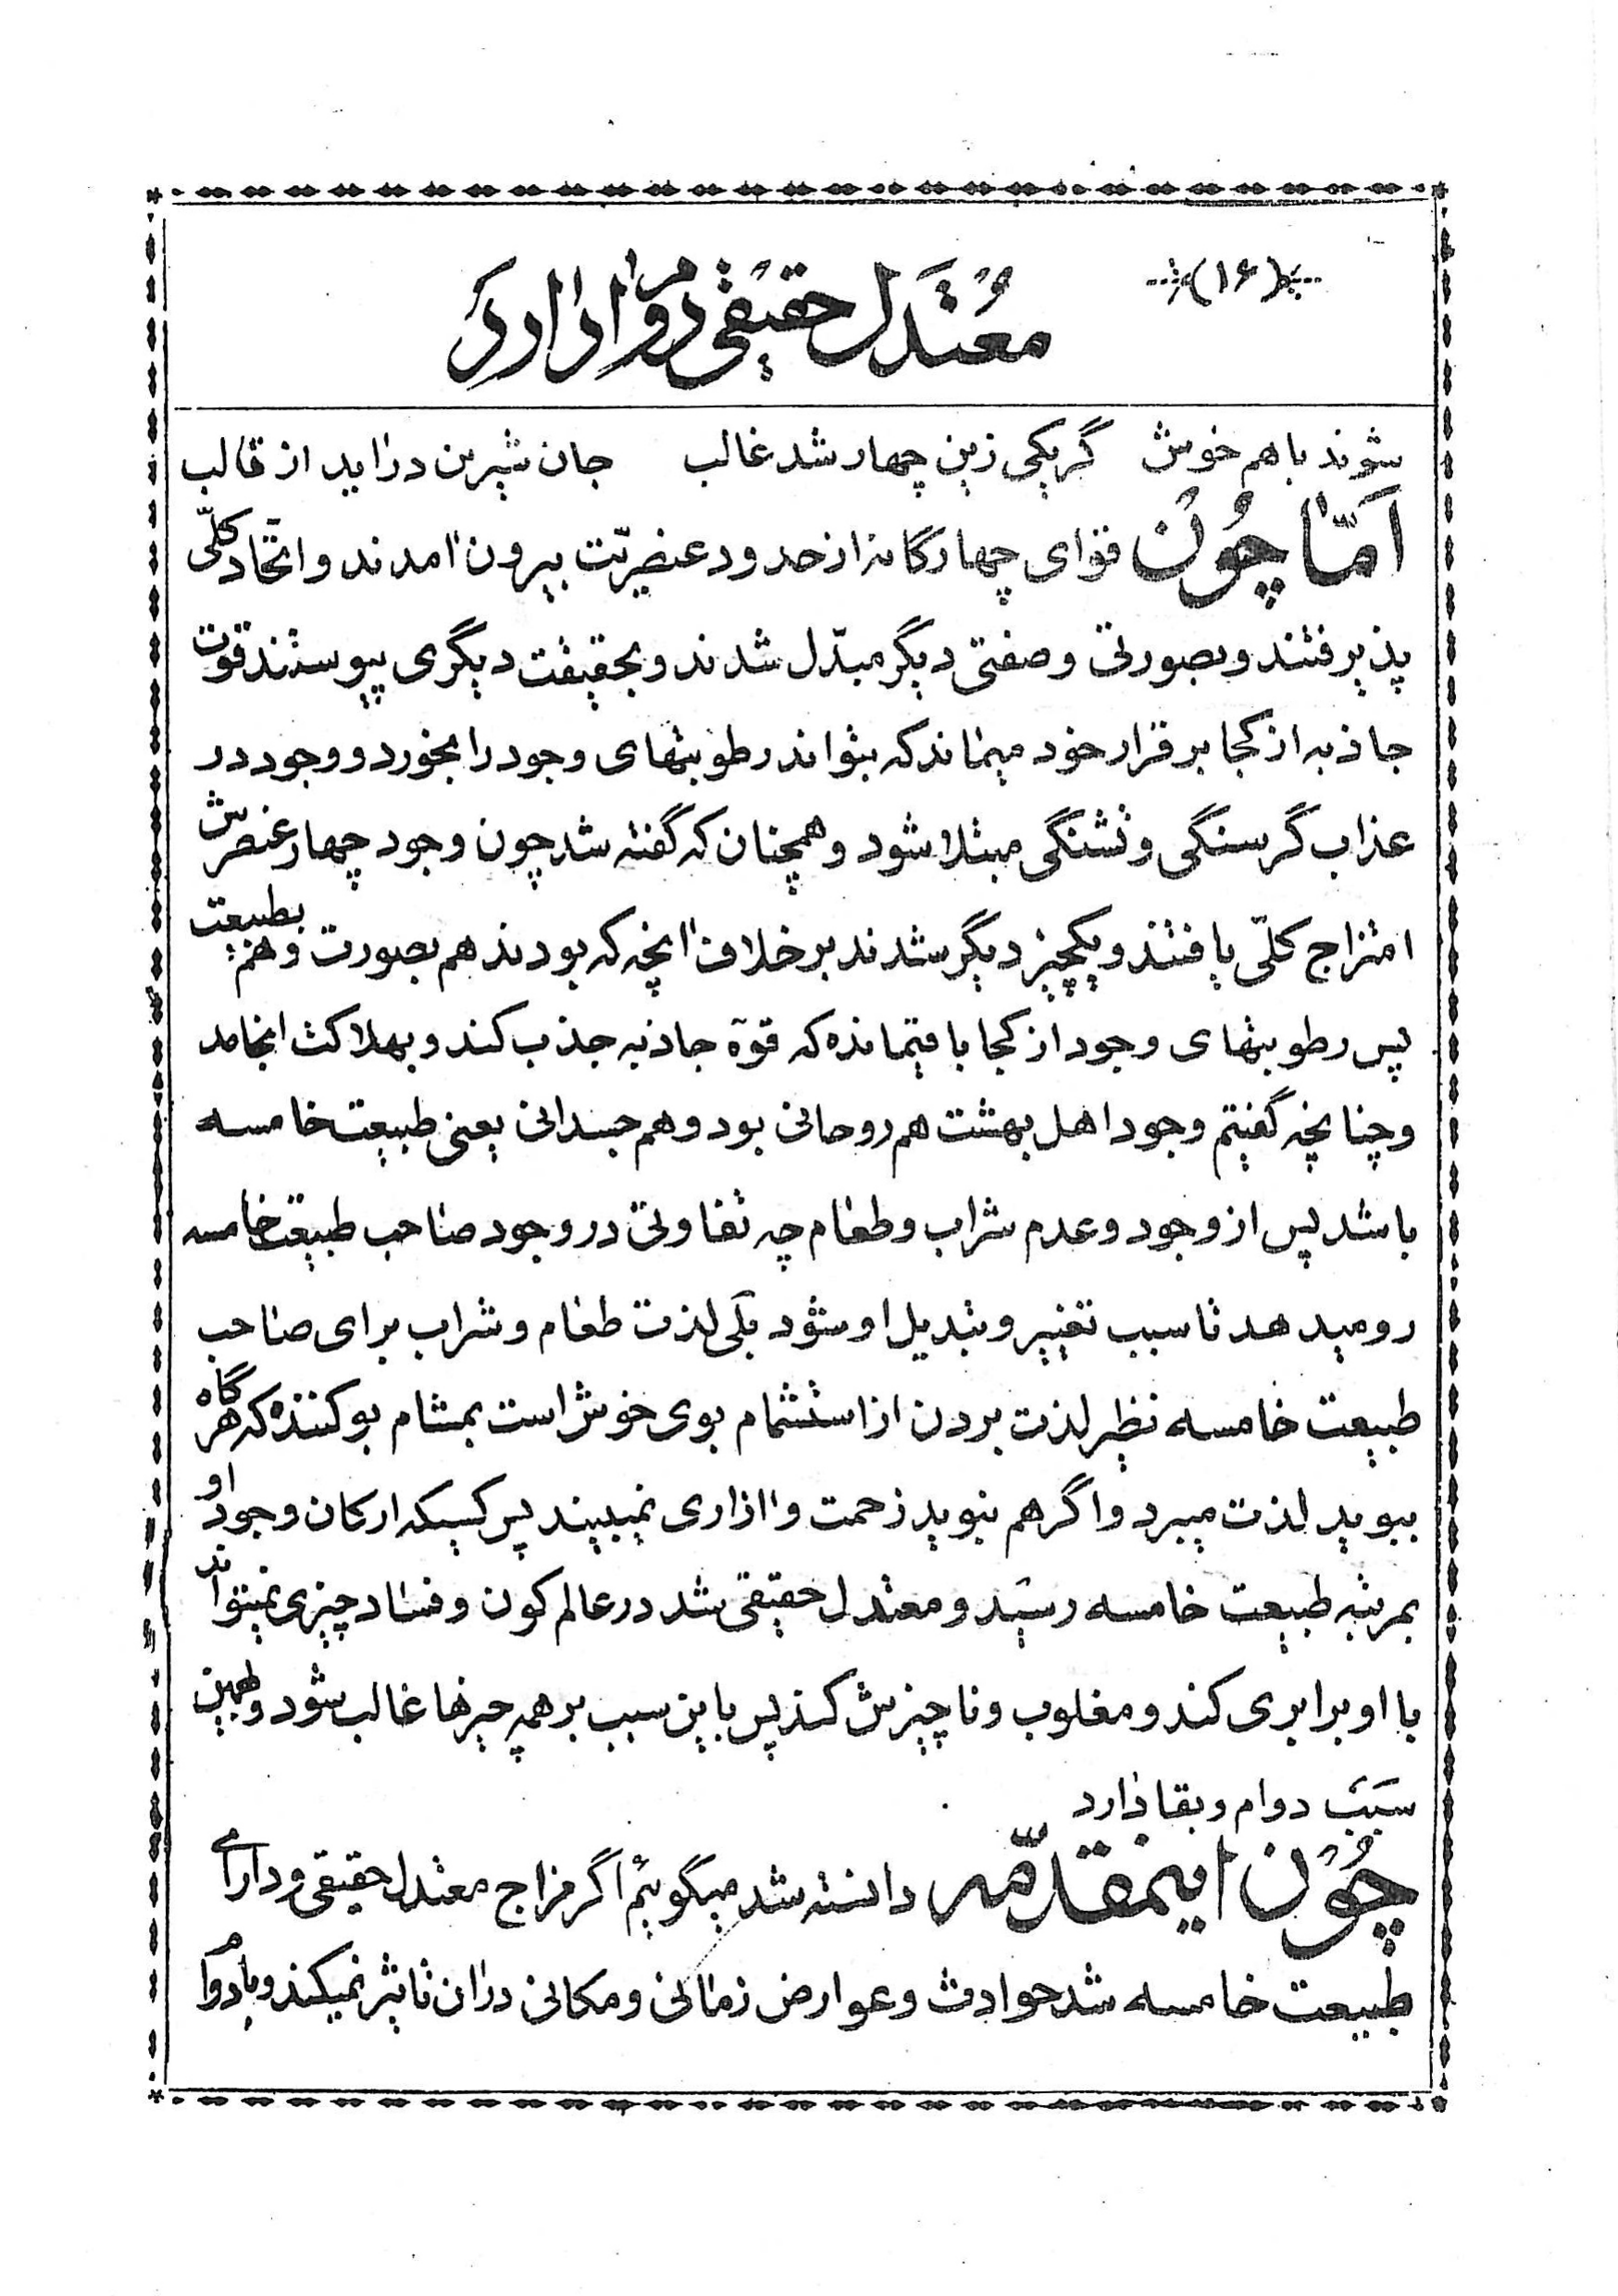 (۱۶)
معتدل حقیقی دوام دارد
شوند با هم خوش گر یکی زین چهار شد غالب جان شیرین دراید از قالب
امّا چون قوای چهارگانه از حدود عنصریّت بیرون امدند و اتّحاد کلّی
پذیرفتند و بصورتی و صفتی دیگر مبدّل شدند و بحقیقت دیگری پیوستند قوت
جاذبه از کجا برقرار خود میماند که بتواند رطوبتهای وجود را بخورد و وجود در
عذاب گرسنگی و تشنگی مبتلا شود و همچنان که گفته شد چون وجود چهار عنصرش
امتزاج کلّی یافتند و یکچیز دیگر شدند بر خلاف انچه که بودند هم بصورت و هم بطبیعت
پس رطوبتهای وجود از کجا باقیمانده که قوّه جاذبه جذب کند و بهلاکت انجامد
و چنانچه گفتیم وجود اهل بهشت هم روحانی بود و هم جسدانی یعنی طبیعت خامسه
باشد پس از وجود و عدم شراب و طعام چه تفاوتی در وجود صاحب طبیعت خامسه
رو میدهد تا سبب تغییر و تبدیل او شود بلی لذت طعام و شراب برای صاحب
طبیعت خامسه نظیر لذت بردن از استشمام بوی خوش است بمشام بو کننده که هرگاه
ببوید لذت میبرد و اگر هم نبوید زحمت و ازاری نمیبیند پس کسیکه ارکان وجود او
بمرتبه طبیعت خامسه رسید و معتدل حقیقی شد در عالم کون و فساد چیزی نمیتواند
با او برابری کند و مغلوب و ناچیزش کند پس باین سبب بر همه چیزها غالب شود و بهمین
سبب دوام و بقا دارد
چون اینمقدّمه دانسته شد میگوئیم اگر مزاج معتدل حقیقی و دارای
طبیعت خامسه شد حوادث و عوارض زمانی و مکانی دران تاثیر نمیکند و بادوام